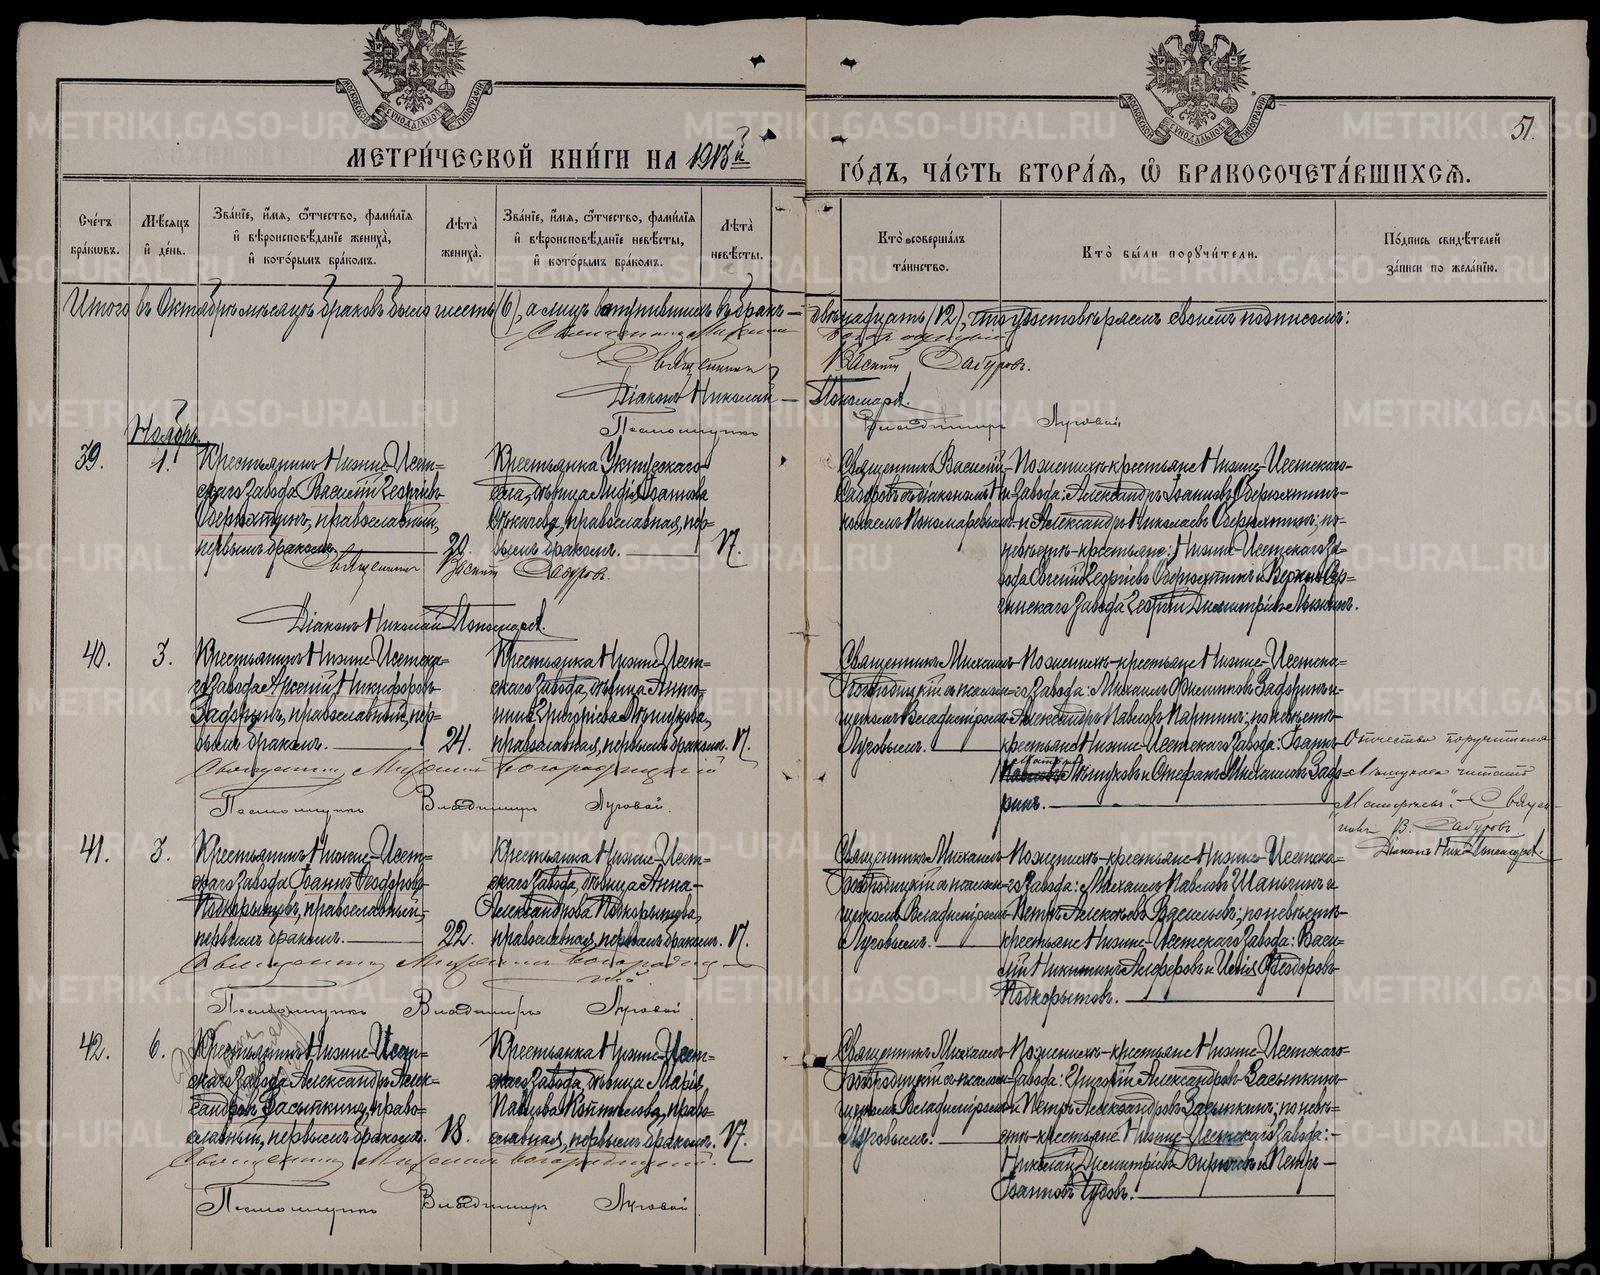 МОСКОВСКОЙ СѴНОДАЛЬНОЙ ТИПОГРАФІИ
МОСКОВСКОЙ СѴНОДАЛЬНОЙ ТИПОГРАФІИ
51.
МЕТРИ́ЧЕСКОЙ КНИ́ГИ НА 1913й
ГО́ДЪ, ЧА́СТЬ ВТОРА́Ѧ, Ѽ БРАКОСОЧЕТА́ВШИХСѦ.
Сче́тъ бра́ковъ.
Мѣ́сяцъ и҆ де́нь.
Зва́нїе, и҆́мѧ, ѻ҆́тчество, фами́лїѧ и҆ вѣроисповѣ́данїе жениха̀, и҆ кото́рымъ бра́комъ.
Лѣ́та жениха̀.
Зва́нїе, и҆́мѧ, ѻ҆́тчество, фами́лїѧ и҆ вѣроисповѣ́данїе невѣ́сты, и҆ кото́рымъ бра́комъ.
Лѣ́та невѣ́сты.
Кто̀ соверша́лъ та́инство.
Кто̀ бы́ли порꙋчи́тели.
По́дпись свидѣ́телей за́писи по жела́нїю.
Итого въ Октябрѣ мѣсяцѣ браковъ было шесть (6), а лицъ вступившихъ въ бракъ — двѣнадцать (12), что удостовѣряемъ своимъ подписомъ:
Священникъ Михаилъ Богородицкій
Священникъ Василій Сабуровъ.
Діаконъ Николай Пономаревъ.
Псаломщикъ Владимиръ Луговой.
Ноябрь
39.
1.
Крестьянинъ Нижне-Исет-
скаго завода Василій Георгіевъ
Обрюхтинъ, православный,
первымъ бракомъ.
20.
Крестьянка Уктусскаго
села, дѣвица Лидія Іоаннова
православная, пер-
вымъ бракомъ.
17.
Священникъ Василій
Сабуровъ съ діакономъ Ни-
колаемъ Пономаревымъ.
По женихѣ крестьяне Нижне-Исетскаго
завода: Александръ Іоанновъ Обрюхтинъ
и Александръ Николаевъ Обрюхтинъ; по
невѣстѣ - крестьяне: Нижне-Исетскаго за-
вода Евгеній Георгіевъ Обрюхтинъ и Верхне-Сер-
гинскаго завода Георгій Димитріевъ
Священникъ Василій Сабуровъ.
Діаконъ Николай Пономаревъ.
40.
3.
Крестьянинъ Нижне-Исетска-
го завода Арсеній Никифоровъ
Задоринъ, православный, пер-
вымъ бракомъ.
24.
Крестьянка Нижне-Исет-
скаго завода, дѣвица Анто-
нина Григоріева Мѣшукова,
православная, первымъ бракомъ.
17.
Священникъ Михаилъ
Богородицкій съ псалом-
щикомъ Владиміромъ
Луговымъ.
По женихѣ - крестьяне Нижне-Исетска-
го завода: Михаилъ Филипповъ Задоринъ и
Александръ Павловъ Паргинъ; по невѣстѣ
крестьяне Нижне-Исетскаго завода: Іоаннъ
Мѣшуковъ и Стефанъ Михаиловъ Задо-
ринъ.
Отчество поручителя
Мѣшукова читать
Священ-
никъ В. Сабуровъ
Діаконъ Ник. Пономаревъ.
Священникъ Михаилъ Богородицкій
Псаломщикъ Владимиръ Луговой.
41.
3.
Крестьянинъ Нижне-Исет-
скаго завода Іоаннъ Ѳеодоровъ
Подкорытовъ, православный,
первымъ бракомъ.
22.
Крестьянка Нижне-Исет-
скаго завода, дѣвица Анна
Александрова Подкорытова,
православная, первымъ бракомъ.
17.
Священникъ Михаилъ
Богородицкій съ псалом-
щикомъ Владиміромъ
Луговымъ.
По женихѣ - крестьяне Нижне-Исетска-
го завода: Михаилъ Павловъ Шаньгинъ и
Петръ Алексѣевъ Васильевъ; по невѣстѣ
крестьяне Нижне-Исетскаго завода: Васи-
лій Никитинъ Алферовъ и Илія Ѳеодоровъ
Подкорытовъ.
Священникъ Михаилъ Богородиц-
кій
Псаломщикъ Владимиръ Луговой
42.
6.
Крестьянинъ Нижне-Исет-
скаго завода Александръ Алек-
сандровъ Засыпкинъ, право-
славный, первымъ бракомъ.
18.
Крестьянка Нижне-Исет-
скаго завода, дѣвица Марія
Павлова Коптѣлова, право-
славная, первымъ бракомъ.
17.
Священникъ Михаилъ
Богородицкій съ псалом-
щикомъ Владиміромъ
Луговымъ.
По женихѣ - крестьяне Нижне-Исетскаго
завода: Григорій Александровъ Засыпкинъ
и Петръ Александровъ Засыпкинъ; по невѣ-
стѣ - крестьяне Нижне-Исетскаго завода:
Николай Димитріевъ и Петръ
Іоанновъ Чудовъ.
Священникъ Михаилъ Богородицкій.
Псаломщикъ Владимиръ Луговой.
METRIKI.GASO-URAL.RU